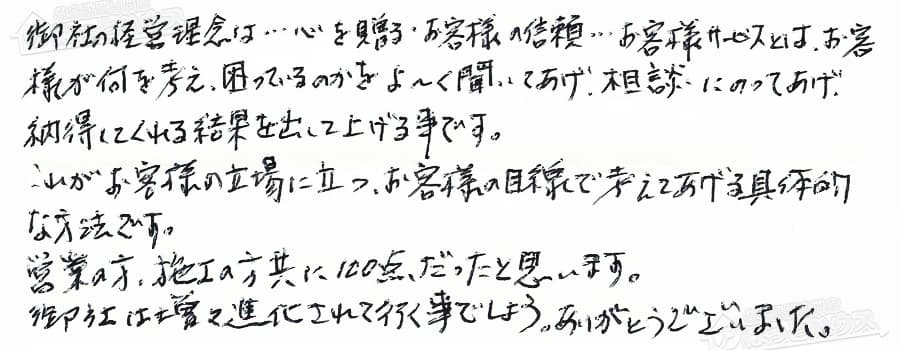 御社の経営理念は…心を贈る・お客様の信頼…お客様サービスとは、お客
様が何を考え、困っているのかをよ〜く聞いてあげ、相談にのってあげ、
納得してくれる結果を出して上げる事です。
これがお客様の立場に立つ、お客様の目線で考えてあげる具体的
な方法です。
営業の方、施工の方共に100点だったと思います。
御社は増々進化されて行く事でしょう。ありがとうございました。